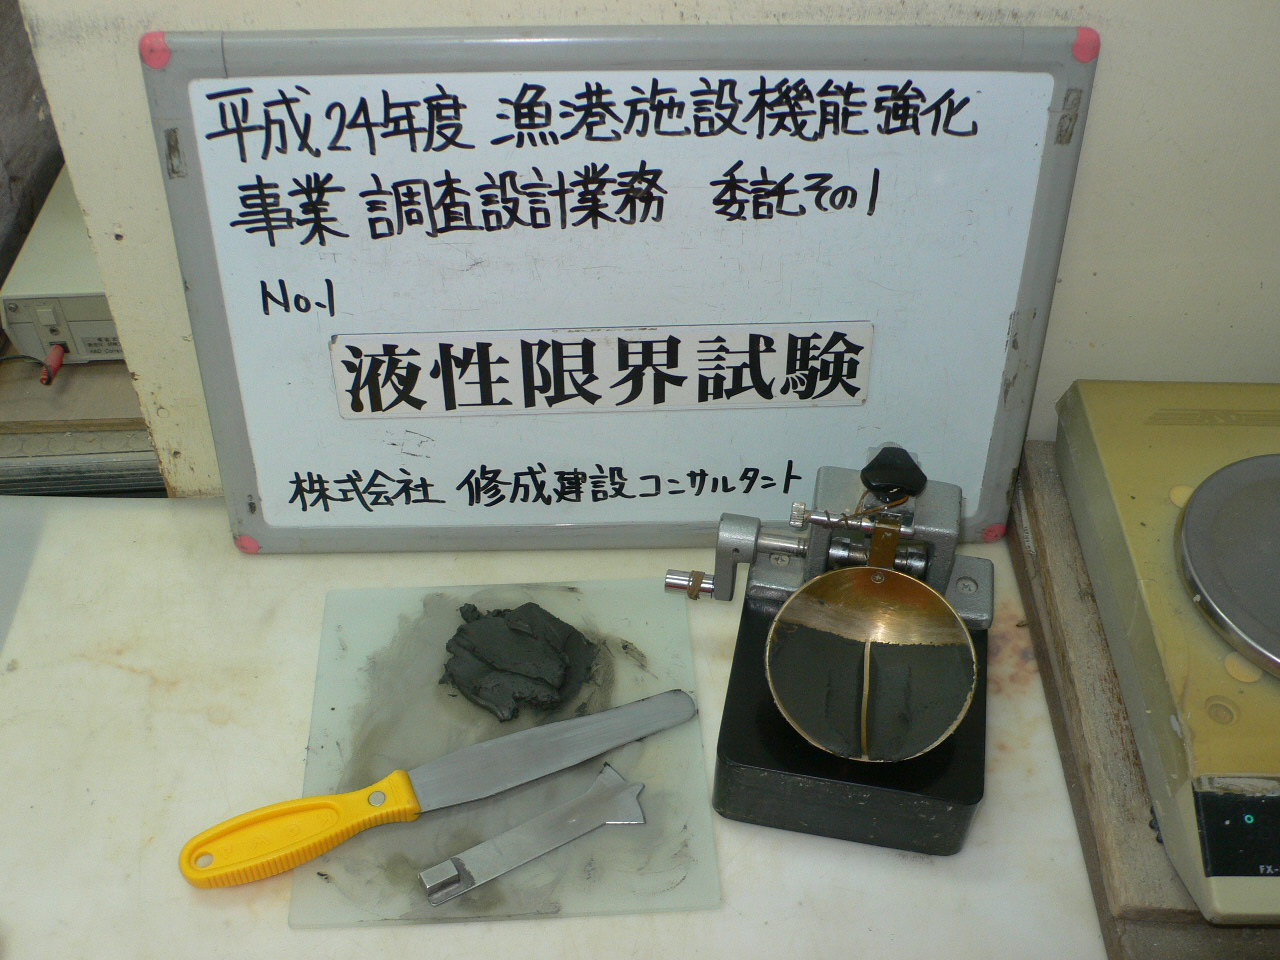 平成24年度 漁港施設機能強化
事業 調査設計業務 委託その1
No.1
液性限界試験
株式会社 修成建設コンサルタント
FX-